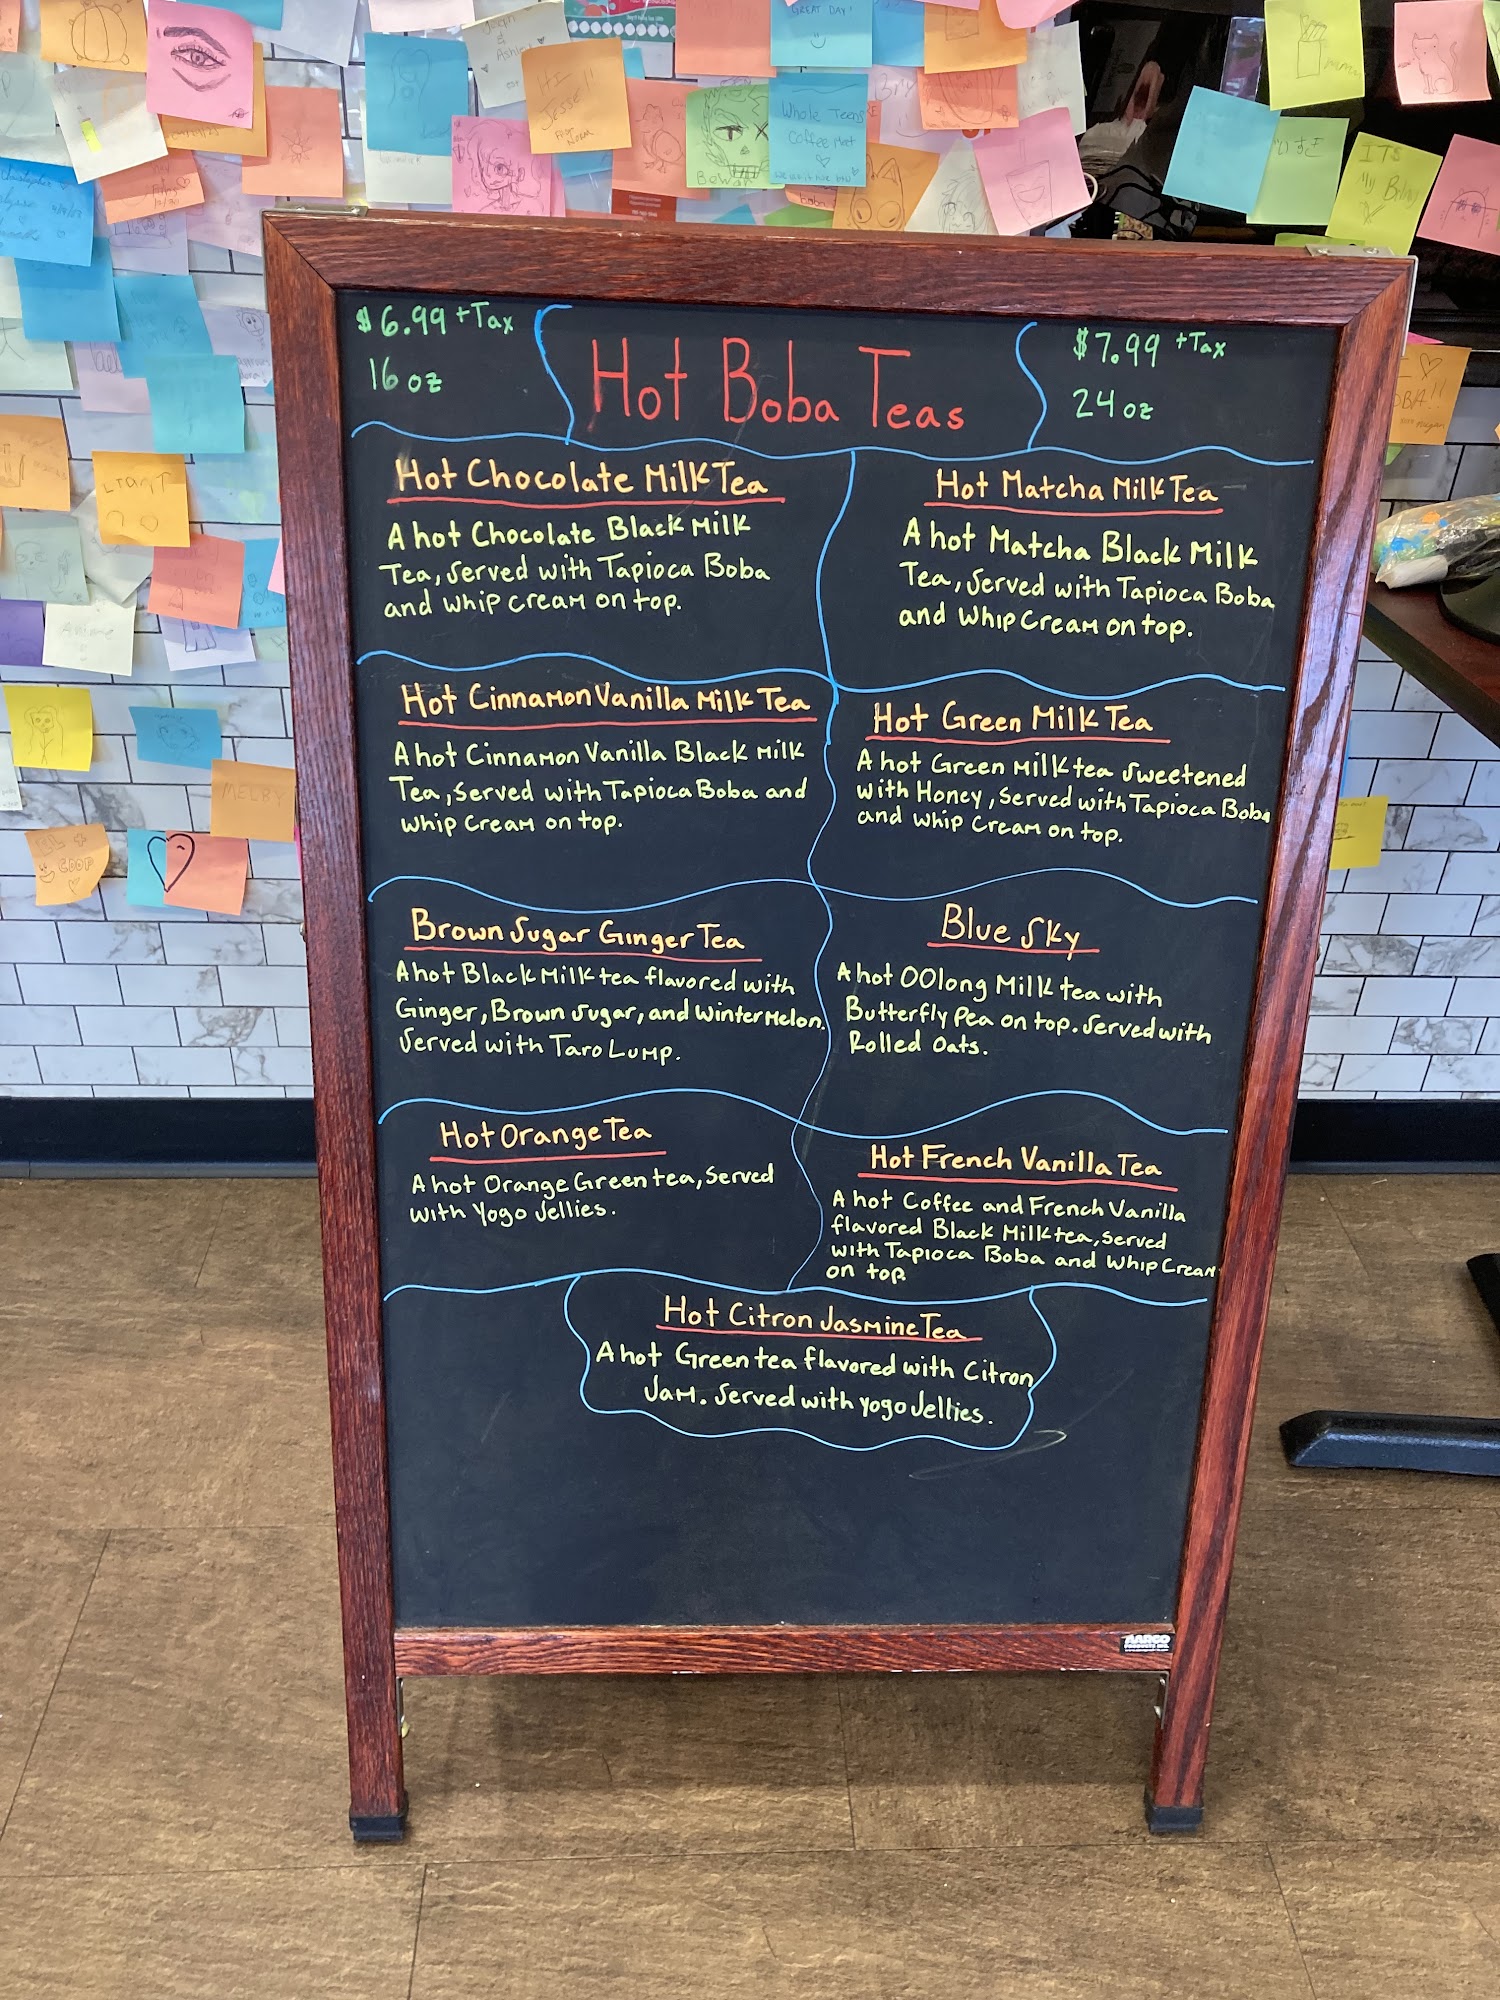 GREAT DAY!
Joseph
&
Ashley
HI
Jesse!!
Whole Teens
Coffee Met
Beware
boba
ITS
MELBY
EL +
COOP
$6.99 +Tax
16 oz
Hot Boba Teas
$7.99 +Tax
24 oz
Hot Chocolate Milk Tea
A hot Chocolate Black Milk
Tea, Served with Tapioca Boba
and whip cream on top.
Hot Matcha Milk Tea
A hot Matcha Black Milk
Tea, Served with Tapioca Boba
and Whip Cream on top.
Hot Cinnamon Vanilla Milk Tea
A hot Cinnamon Vanilla Black Milk
Tea, Served with Tapioca Boba and
whip Cream on top.
Hot Green Milk Tea
A hot Green Milk tea Sweetened
with Honey, Served with Tapioca Boba
and whip Cream on top.
Brown Sugar Ginger Tea
A hot Black Milk tea flavored with
Ginger, Brown Sugar, and Winter Melon.
Served with Taro Lump.
Blue Sky
A hot OOlong Milk tea with
Butterfly Pea on top. Served with
Rolled Oats.
Hot Orange Tea
A hot Orange Green tea, Served
with Yogo Jellies.
Hot French Vanilla Tea
A hot Coffee and French Vanilla
flavored Black Milk tea, Served
with Tapioca Boba and Whip Cream
on top
Hot Citron Jasmine Tea
A hot Green tea flavored with Citron
Jam. Served with yogo Jellies.
AARCO